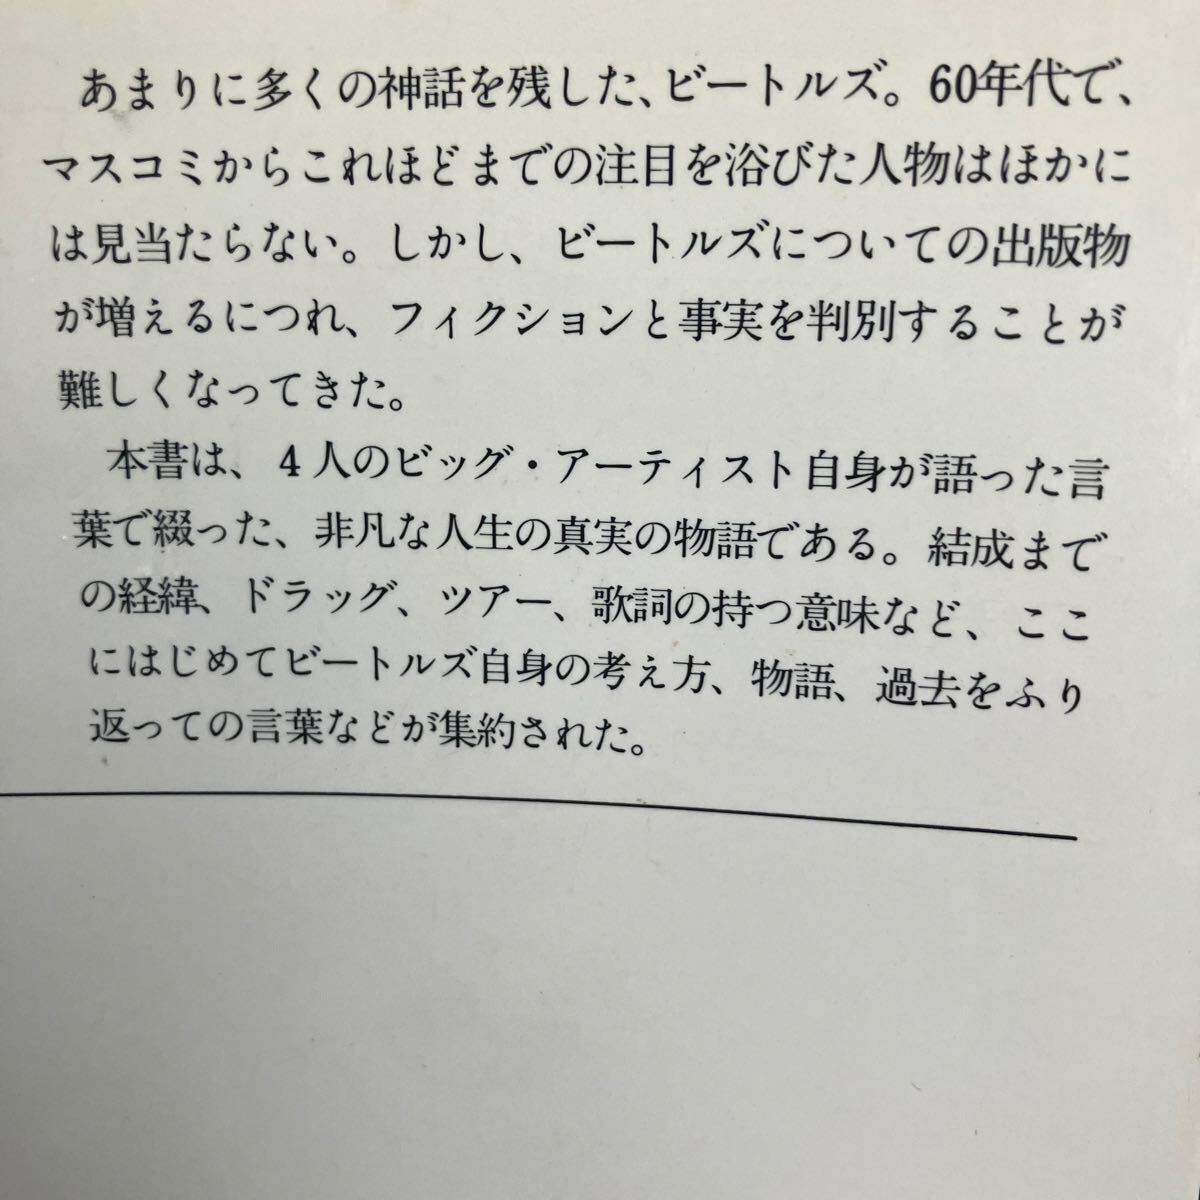 あまりに多くの神話を残した、ビートルズ。60年代で、
マスコミからこれほどまでの注目を浴びた人物はほかに
は見当たらない。しかし、ビートルズについての出版物
が増えるにつれ、フィクションと事実を判別することが
難しくなってきた。
本書は、4人のビッグ・アーティスト自身が語った言
葉で綴った、非凡な人生の真実の物語である。結成まで
の経緯、ドラッグ、ツアー、歌詞の持つ意味など、ここ
にはじめてビートルズ自身の考え方、物語、過去をふり
返っての言葉などが集約された。